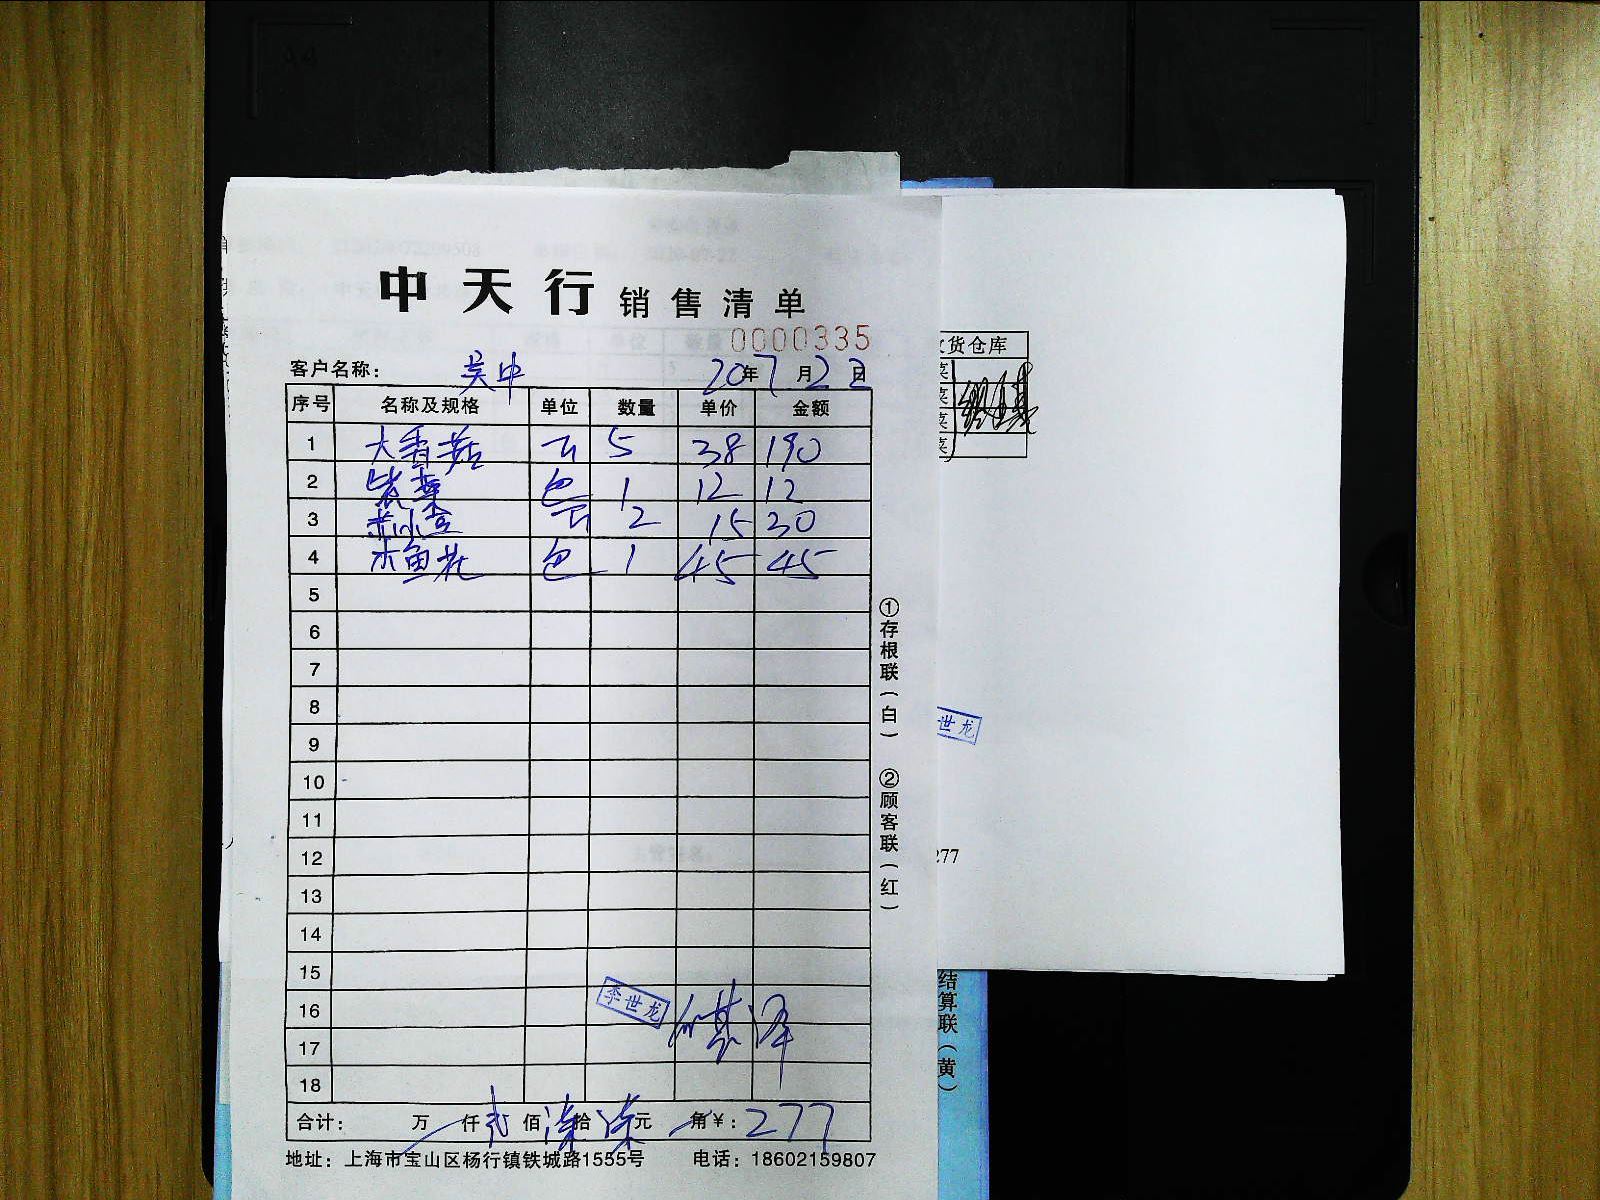 中天行 销售清单
0000335
客户名称： 吴中 20年7月22日
序号 名称及规格 单位 数量 单价 金额
1 大香菇 斤 5 38 190
2 紫菜 包 1 12 12
3 赤小豆 斤 2 15 30
4 木鱼花 包 1 45 45
5
6
7
8
9
10
11
12
13
14
15
16
17
18
李世龙
合计： 万 仟 贰 佰 柒 拾 柒 元 角￥：277
地址：上海市宝山区杨行镇铁城路1555号 电话：18602159807
①存根联（白） ②顾客联（红）
货仓库
菜
菜
菜
菜
世龙
277
结算联（黄）